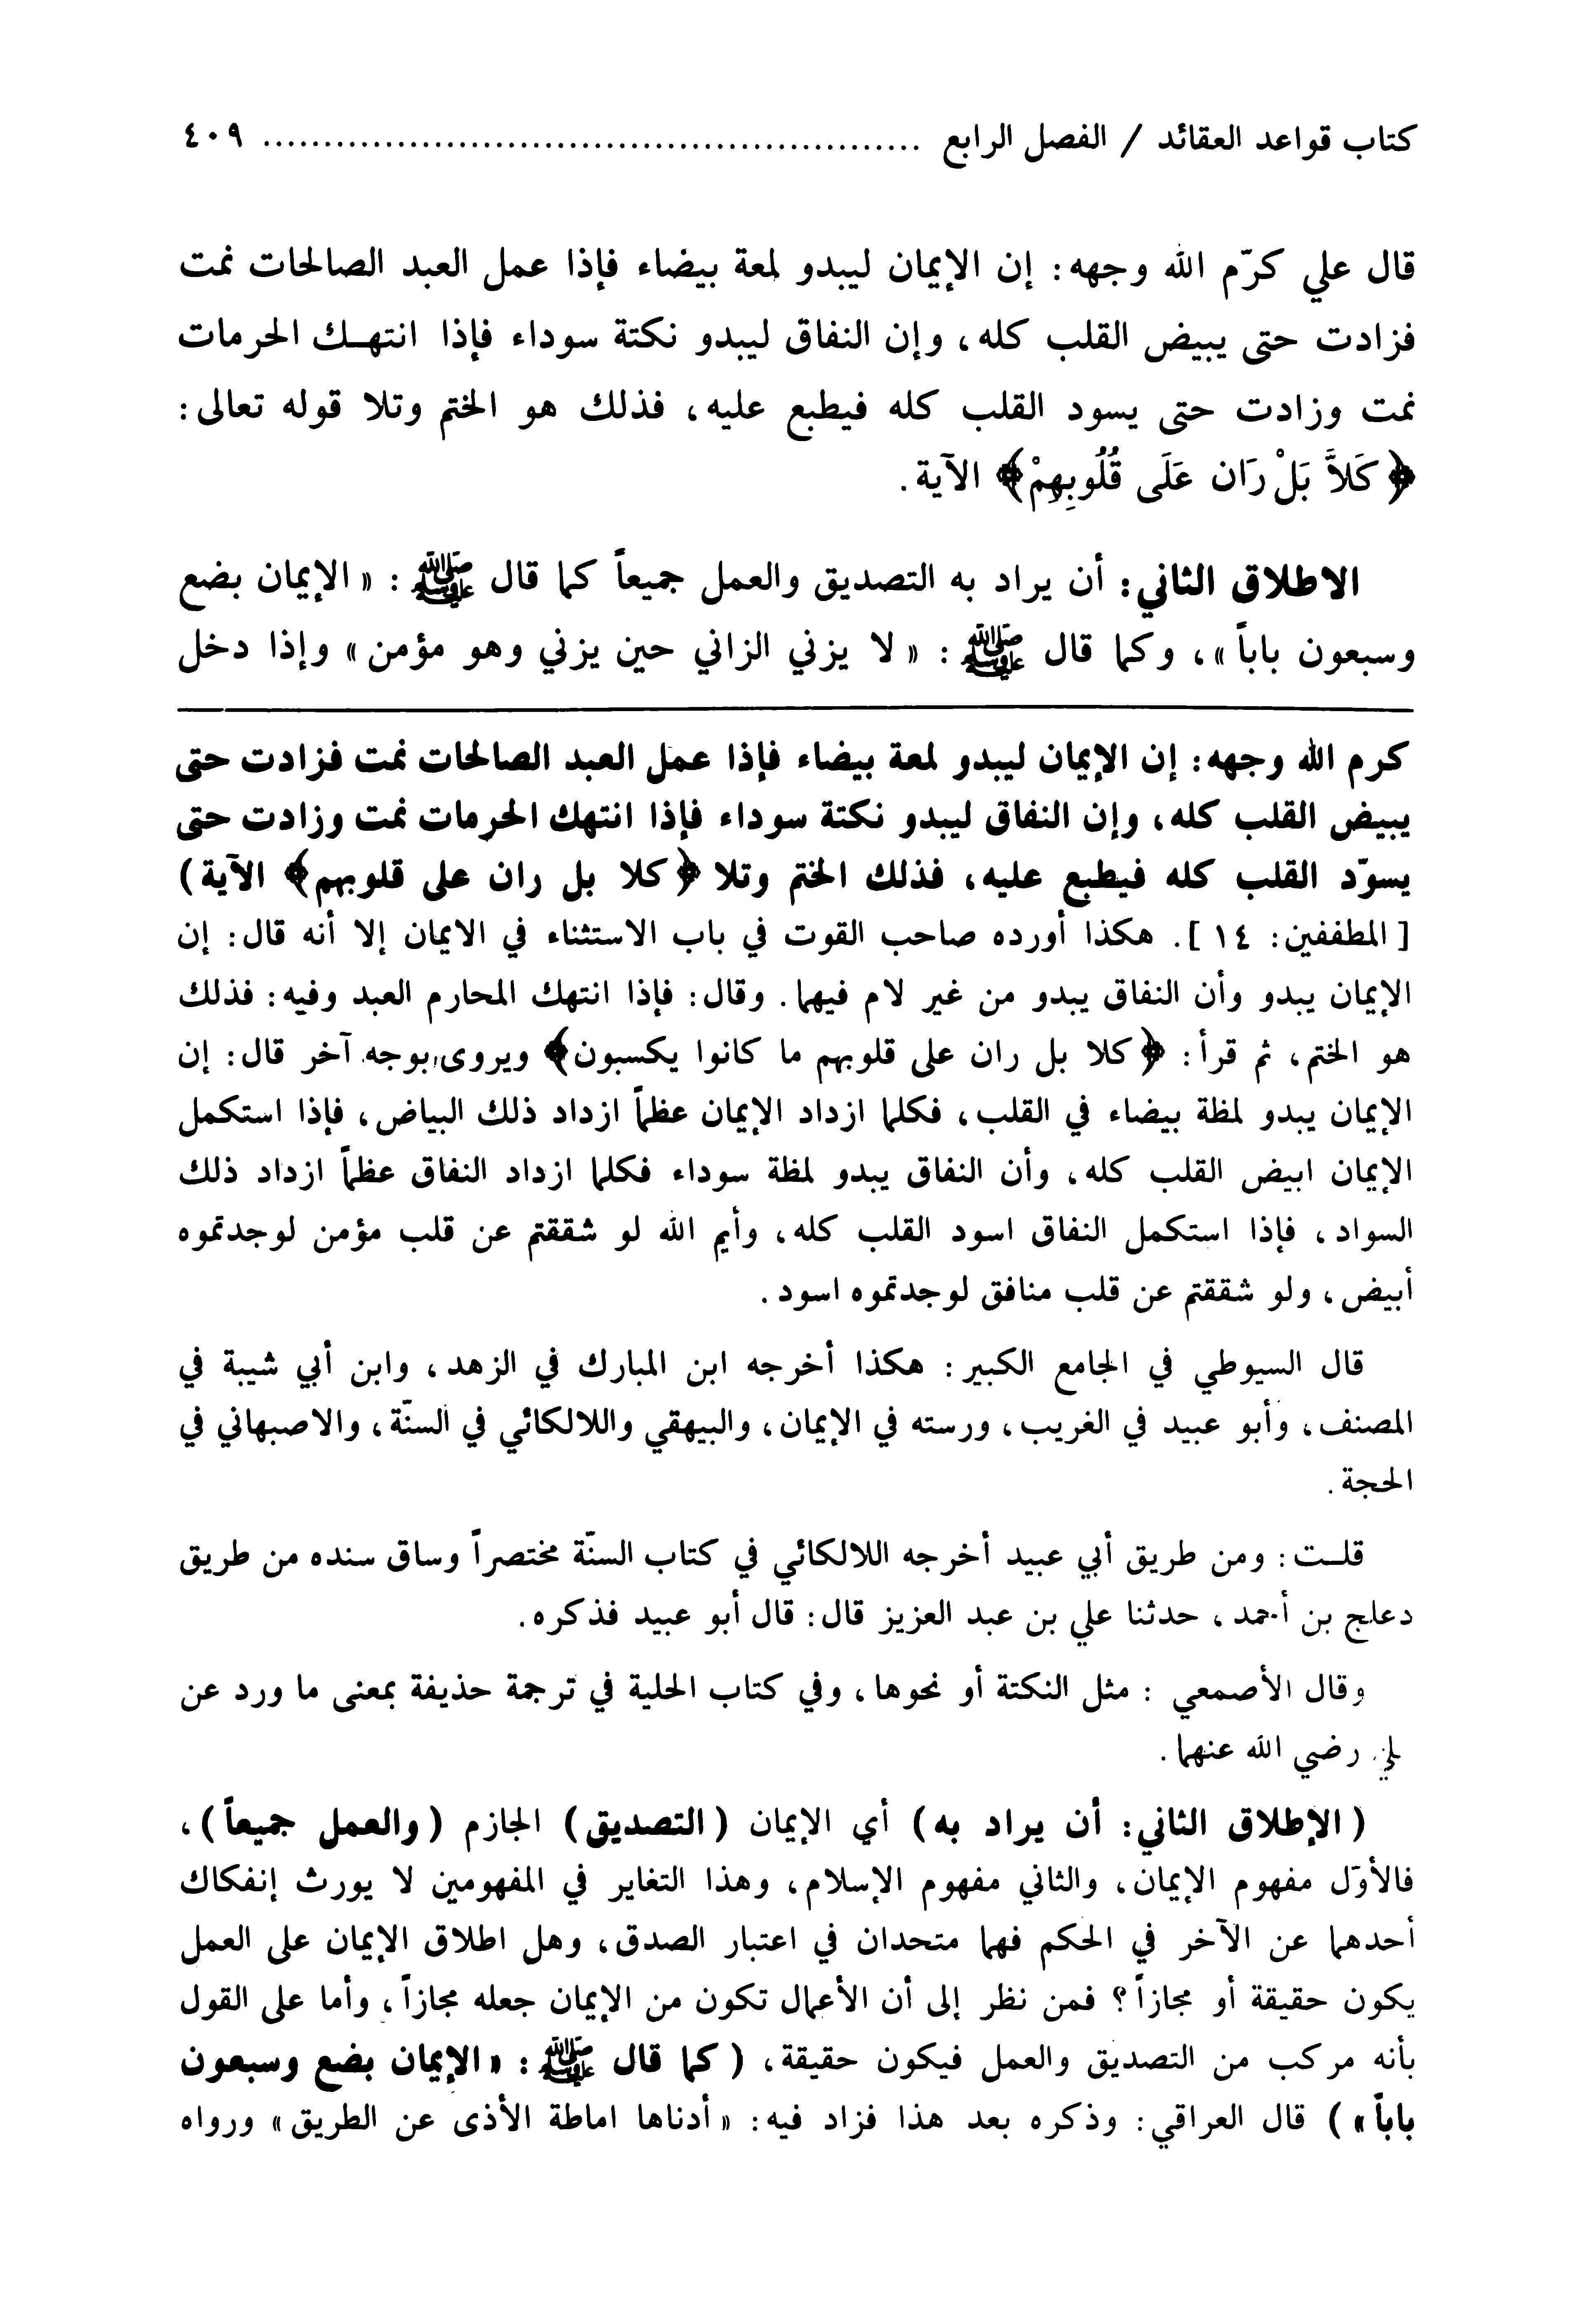 كتاب قواعد العقائد / الفصل الرابع ...................................................... ٤٠٩
قال علي كرّم الله وجهه: إن الإيمان ليبدو لمعة بيضاء فإذا عمل العبد الصالحات نمت
فزادت حتى يبيض القلب كله، وإن النفاق ليبدو نكتة سوداء فإذا انتهـك الحرمات
نمت وزادت حتى يسود القلب كله فيطبع عليه، فذلك هو الختم وتلا قوله تعالى:
﴿كَلاَّ بَلْ رَان عَلَى قُلُوبِهِمْ﴾ الآية.
الاطلاق الثاني: أن يراد به التصديق والعمل جميعاً كما قال ﷺ: «الإيمان بضع
وسبعون باباً»، وكما قال ﷺ: «لا يزني الزاني حين يزني وهو مؤمن» وإذا دخل
كرم الله وجهه: إن الإيمان ليبدو لمعة بيضاء فإذا عمل العبد الصالحات نمت فزادت حتى
يبيض القلب كله، وإن النفاق ليبدو نكتة سوداء فإذا انتهك الحرمات نمت وزادت حتى
يسوّد القلب كله فيطبع عليه، فذلك الختم وتلا ﴿كلا بل ران على قلوبهم﴾ الآية)
[المطففين: ١٤]. هكذا أورده صاحب القوت في باب الاستثناء في الايمان إلا أنه قال: إن
الإيمان يبدو وأن النفاق يبدو من غير لام فيهما. وقال: فإذا انتهك المحارم العبد وفيه: فذلك
هو الختم، ثم قرأ: ﴿كلا بل ران على قلوبهم ما كانوا يكسبون﴾ ويروى بوجه آخر قال: إن
الإيمان يبدو لمظة بيضاء في القلب، فكلما ازداد الإيمان عظماً ازداد ذلك البياض، فإذا استكمل
الإيمان ابيض القلب كله، وأن النفاق يبدو لمظة سوداء فكلما ازداد النفاق عظماً ازداد ذلك
السواد، فإذا استكمل النفاق اسود القلب كله، وأيم الله لو شققتم عن قلب مؤمن لوجدتموه
أبيض، ولو شققتم عن قلب منافق لوجدتموه اسود.
قال السيوطي في الجامع الكبير: هكذا أخرجه ابن المبارك في الزهد، وابن أبي شيبة في
المصنف، وأبو عبيد في الغريب، ورسته في الإيمان، والبيهقي واللالكائي في السنّة، والاصبهاني في
الحجة.
قلـت: ومن طريق أبي عبيد أخرجه اللالكائي في كتاب السنّة مختصراً وساق سنده من طريق
دعلج بن أحمد، حدثنا علي بن عبد العزيز قال: قال أبو عبيد فذكره.
وقال الأصمعي: مثل النكتة أو نحوها، وفي كتاب الحلية في ترجمة حذيفة بمعنى ما ورد عن
رضي الله عنهما.
(الإطلاق الثاني: أن يراد به) أي الإيمان (التصديق) الجازم (والعمل جميعاً)،
فالأوّل مفهوم الإيمان، والثاني مفهوم الإسلام، وهذا التغاير في المفهومين لا يورث إنفكاك
أحدهما عن الآخر في الحكم فهما متحدان في اعتبار الصدق، وهل اطلاق الإيمان على العمل
يكون حقيقة أو مجازاً؟ فمن نظر إلى أن الأعمال تكون من الإيمان جعله مجازاً، وأما على القول
بأنه مركب من التصديق والعمل فيكون حقيقة، (كما قال ﷺ: «الإيمان بضع وسبعون
باباً») قال العراقي: وذكره بعد هذا فزاد فيه: «أدناها اماطة الأذى عن الطريق» ورواه